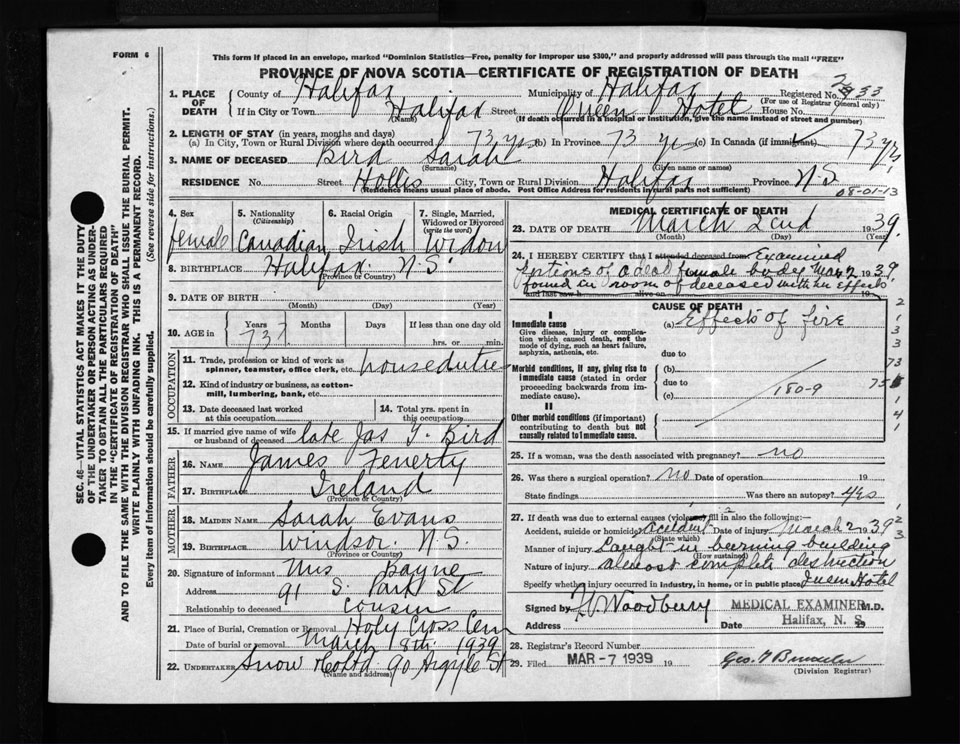 FORM 6
This form if placed in an envelope, marked "Dominion Statistics—Free, penalty for improper use $300," and properly addressed will pass through the mail "FREE"
PROVINCE OF NOVA SCOTIA—CERTIFICATE OF REGISTRATION OF DEATH
1. PLACE OF DEATH County of Halifax Municipality of Halifax Registered No. 33
(For use of Registrar General only)
If in City or Town Halifax Street Queen Hotel House No.
(Name) (If death occurred in a hospital or institution, give the name instead of street and number)
2. LENGTH OF STAY (in years, months and days)
(a) In City, Town or Rural Division where death occurred 73 yrs (b) In Province 73 yr (c) In Canada (if immigrant) 73 yrs
3. NAME OF DECEASED Bird Sarah
(Surname) (Given name or names)
RESIDENCE No. Street Hollis City, Town or Rural Division Halifax Province N S
(Residence means usual place of abode. Post Office Address for residents in rural parts not sufficient)
08-01-13
SEC. 46—VITAL STATISTICS ACT MAKES IT THE DUTY OF THE UNDERTAKER OR PERSON ACTING AS UNDERTAKER TO OBTAIN ALL THE PARTICULARS REQUIRED IN THE "CERTIFICATE OF REGISTRATION OF DEATH"
AND TO FILE THE SAME WITH THE DIVISION REGISTRAR WHO SHALL ISSUE THE BURIAL PERMIT.
WRITE PLAINLY WITH UNFADING INK. THIS IS A PERMANENT RECORD.
Every item of information should be carefully supplied. (See reverse side for instructions.)
4. Sex female
5. Nationality (Citizenship) Canadian
6. Racial Origin Irish
7. Single, Married, Widowed or Divorced (write the word) Widow
8. BIRTHPLACE Halifax N.S.
(Province or Country)
9. DATE OF BIRTH
(Month) (Day) (Year)
10. AGE in Years 73? Months Days If less than one day old
hrs. or min.
OCCUPATION
11. Trade, profession or kind of work as spinner, teamster, office clerk, etc. house duties
12. Kind of industry or business, as cotton-mill, lumbering, bank, etc.
13. Date deceased last worked at this occupation
14. Total yrs. spent in this occupation
15. If married give name of wife or husband of deceased late Jas G. Bird
FATHER
16. NAME James Fenerty
17. BIRTHPLACE Ireland
(Province or Country)
MOTHER
18. MAIDEN NAME Sarah Evans
19. BIRTHPLACE Windsor N.S.
(Province or Country)
20. Signature of informant Mrs Bayne
Address 91 S. Park St
Relationship to deceased cousin
21. Place of Burial, Cremation or Removal Holy Cross Cem
Date of burial or removal March 8th 1939
22. UNDERTAKER Snow & Co Ltd 90 Argyle St
(Name and address)
MEDICAL CERTIFICATE OF DEATH
23. DATE OF DEATH March 2nd 1939.
(Month) (Day) (Year)
24. I HEREBY CERTIFY that I attended deceased from Examined
portions of a dead female body Mar 2 1939
found in room of deceased with her effects
and last saw h alive on 19
CAUSE OF DEATH
I
Immediate cause
Give disease, injury or complication which caused death, not the mode of dying, such as heart failure, asphyxia, asthenia, etc.
(a) Effects of fire
due to
Morbid conditions, if any, giving rise to immediate cause (stated in order proceeding backwards from immediate cause).
(b)
due to
(c)
180-9
II
Other morbid conditions (if important) contributing to death but not causally related to immediate cause.
25. If a woman, was the death associated with pregnancy? no
26. Was there a surgical operation? no Date of operation 19
State findings Was there an autopsy? yes
27. If death was due to external causes (violence) fill in also the following:—
Accident, suicide or homicide? accident Date of injury March 2 1939
(State which)
Manner of injury Caught in burning building
(How sustained)
Nature of injury almost complete destruction
Specify whether injury occurred in industry, in home, or in public place Queen Hotel
Signed by Woodbury MEDICAL EXAMINER M.D.
Address Date Halifax, N. S. 19
28. Registrar's Record Number
29. Filed MAR - 7 1939 19
(Division Registrar)